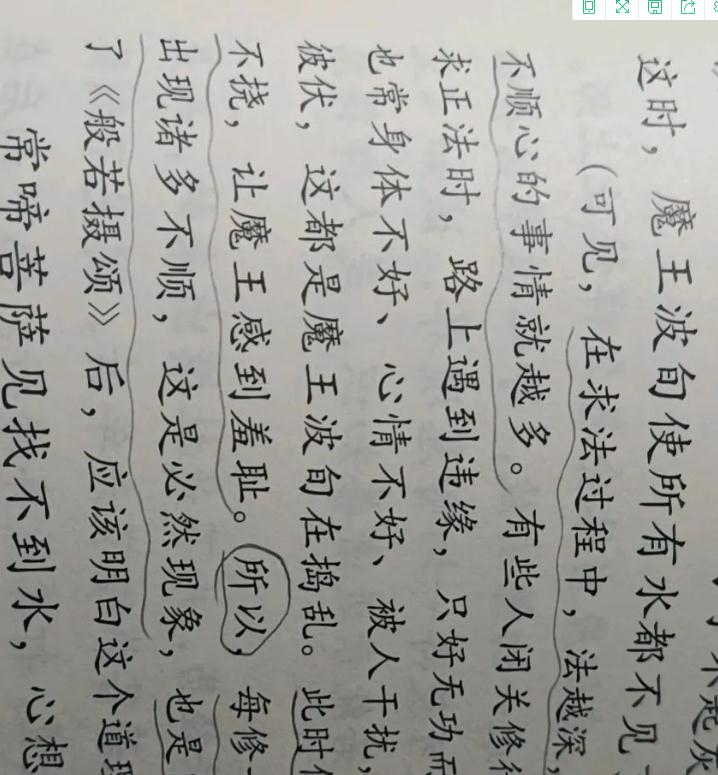 不起灰
这时，魔王波旬使所有水都不见
（可见，在求法过程中，法越深，
不顺心的事情就越多。有些人闭关修行
求正法时，路上遇到违缘，只好无功而
也常身体不好、心情不好、被人干扰，
彼伏，这都是魔王波旬在捣乱。此时
不挠，让魔王感到羞耻。所以，每修一
出现诸多不顺，这是必然现象，也是
了《般若摄颂》后，应该明白这个道理
常啼菩萨见找不到水，心想